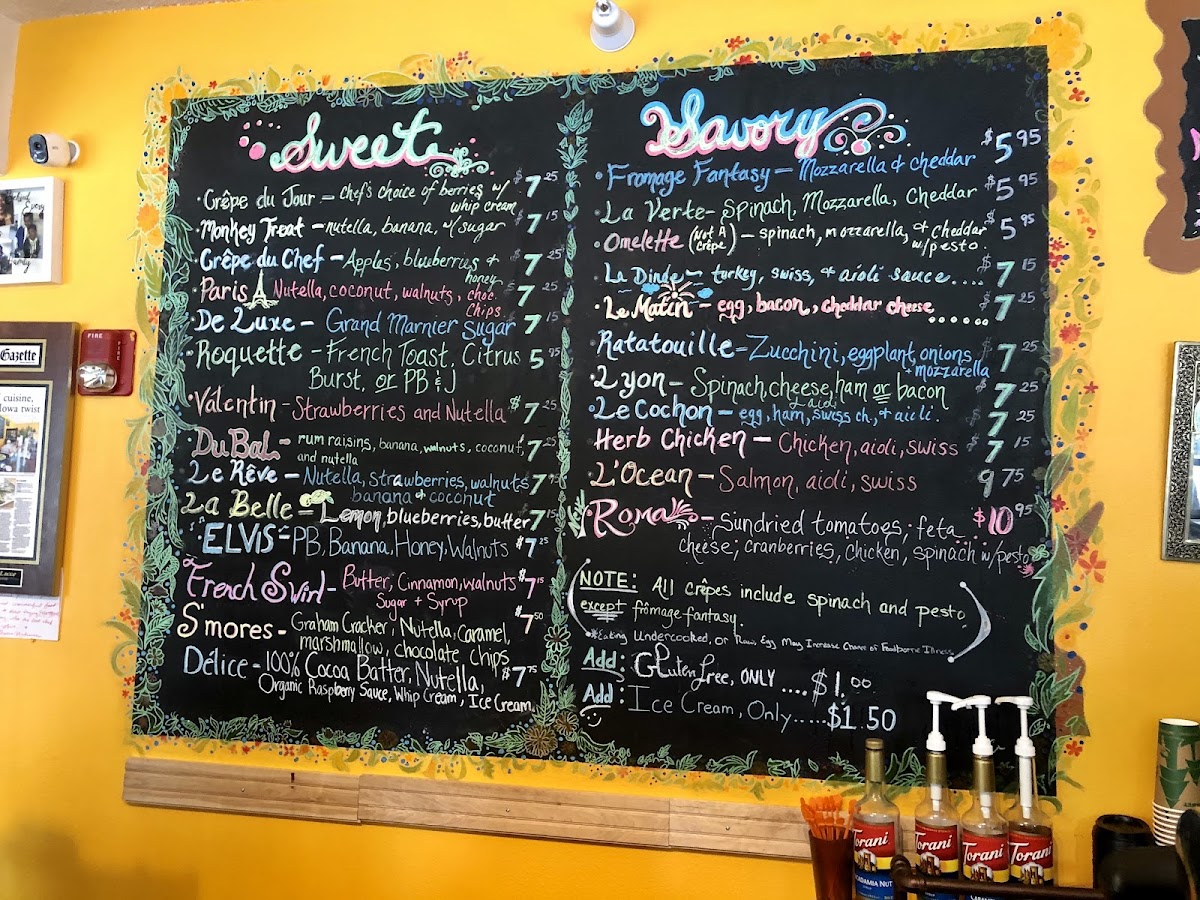 Sweet
• Crêpe du Jour – chef's choice of berries w/ $7.25
whip cream
• Monkey Treat – nutella, banana, w/ sugar $7.15
• Crêpe du Chef – Apples, blueberries + $7.25
honey
• Paris Nutella, coconut, walnuts, choc. $7.25
chips
• De Luxe – Grand Marnier Sugar $7.15
• Roquette – French Toast, Citrus 5.95
Burst, or PB & J
• Valentin – Strawberries and Nutella $7.25
• Du Bal – rum raisins, banana, walnuts, coconut, 7.25
and nutella
• Le Rêve – Nutella, strawberries, walnuts 7.25
banana + coconut
• La Belle – Lemon, blueberries, butter 7.15
• ELVIS – PB, Banana, Honey, Walnuts $7.25
• French Swirl – Butter, Cinnamon, walnuts $7.15
Sugar + Syrup
• S'mores – Graham Cracker, Nutella, Caramel, $7.50
marshmallow, chocolate chips
Délice – 100% Cocoa Batter, Nutella, $7.75
Organic Raspberry Sauce, Whip Cream, Ice Cream
Savory
• Fromage Fantasy – Mozzarella & cheddar $5.95
• La Verte – Spinach, Mozzarella, Cheddar $5.95
• Omelette (Not A crêpe) – spinach, mozzarella, & cheddar $5.95
w/ pesto.
• La Dinde – turkey, swiss, & aioli sauce.... $7.15
• Le Matin – egg, bacon, cheddar cheese...... $7.25
• Ratatouille – Zucchini, eggplant, onions, $7.25
mozzarella
• Lyon – Spinach, cheese, ham or bacon 7.25
aioli
• Le Cochon – egg, ham, swiss ch., & aioli. 7.25
Herb Chicken – Chicken, aioli, swiss 7.15
• L'Ocean – Salmon, aioli, swiss 9.75
• Roma – Sundried tomatoes; feta $10.95
cheese; cranberries, chicken, spinach w/pesto
(NOTE: All crêpes include spinach and pesto,
except fromage fantasy.
*Eating Undercooked, or Raw, Egg May Increase Chance of Foodborne Illness)
Add: Gluten free, ONLY ....$1.00
Add: Ice Cream, Only.....$1.50
Gazette
cuisine,
Iowa twist
FIRE
Torani
MACADAMIA NUT
Torani
Torani
Torani